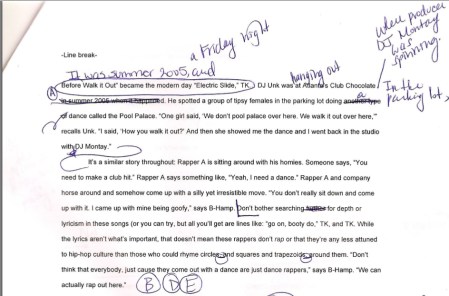 a Friday night
when producer
DJ Montay
was
spinning.
-Line break-
It was summer 2005, and
hanging out
Before Walk it Out" became the modern day "Electric Slide," TK. DJ Unk was at Atlanta's Club Chocolate
In the
parking lot,
in summer 2005 when it happened. He spotted a group of tipsy females in the parking lot doing another type
a
of dance called the Pool Palace. "One girl said, 'We don't pool palace over here. We walk it out over here,'"
recalls Unk. "I said, 'How you walk it out?' And then she showed me the dance and I went back in the studio
with DJ Montay."
It's a similar story throughout: Rapper A is sitting around with his homies. Someone says, "You
need to make a club hit." Rapper A says something like, "Yeah, I need a dance." Rapper A and company
horse around and somehow come up with a silly yet irresistible move. "You don't really sit down and come
up with it. I came up with mine being goofy," says B-Hamp. Don't bother searching for depth or
lyricism in these songs (or you can try, but all you'll get are lines like: "go on, booty do," TK, and TK. While
the lyrics aren't what's important, that doesn't mean these rappers don't rap or that they're any less attuned
to hip-hop culture than those who could rhyme circles and squares and trapezoids around them. "Don't
think that everybody, just cause they come out with a dance are just dance rappers," says B-Hamp. "We can
actually rap out here."
B D E